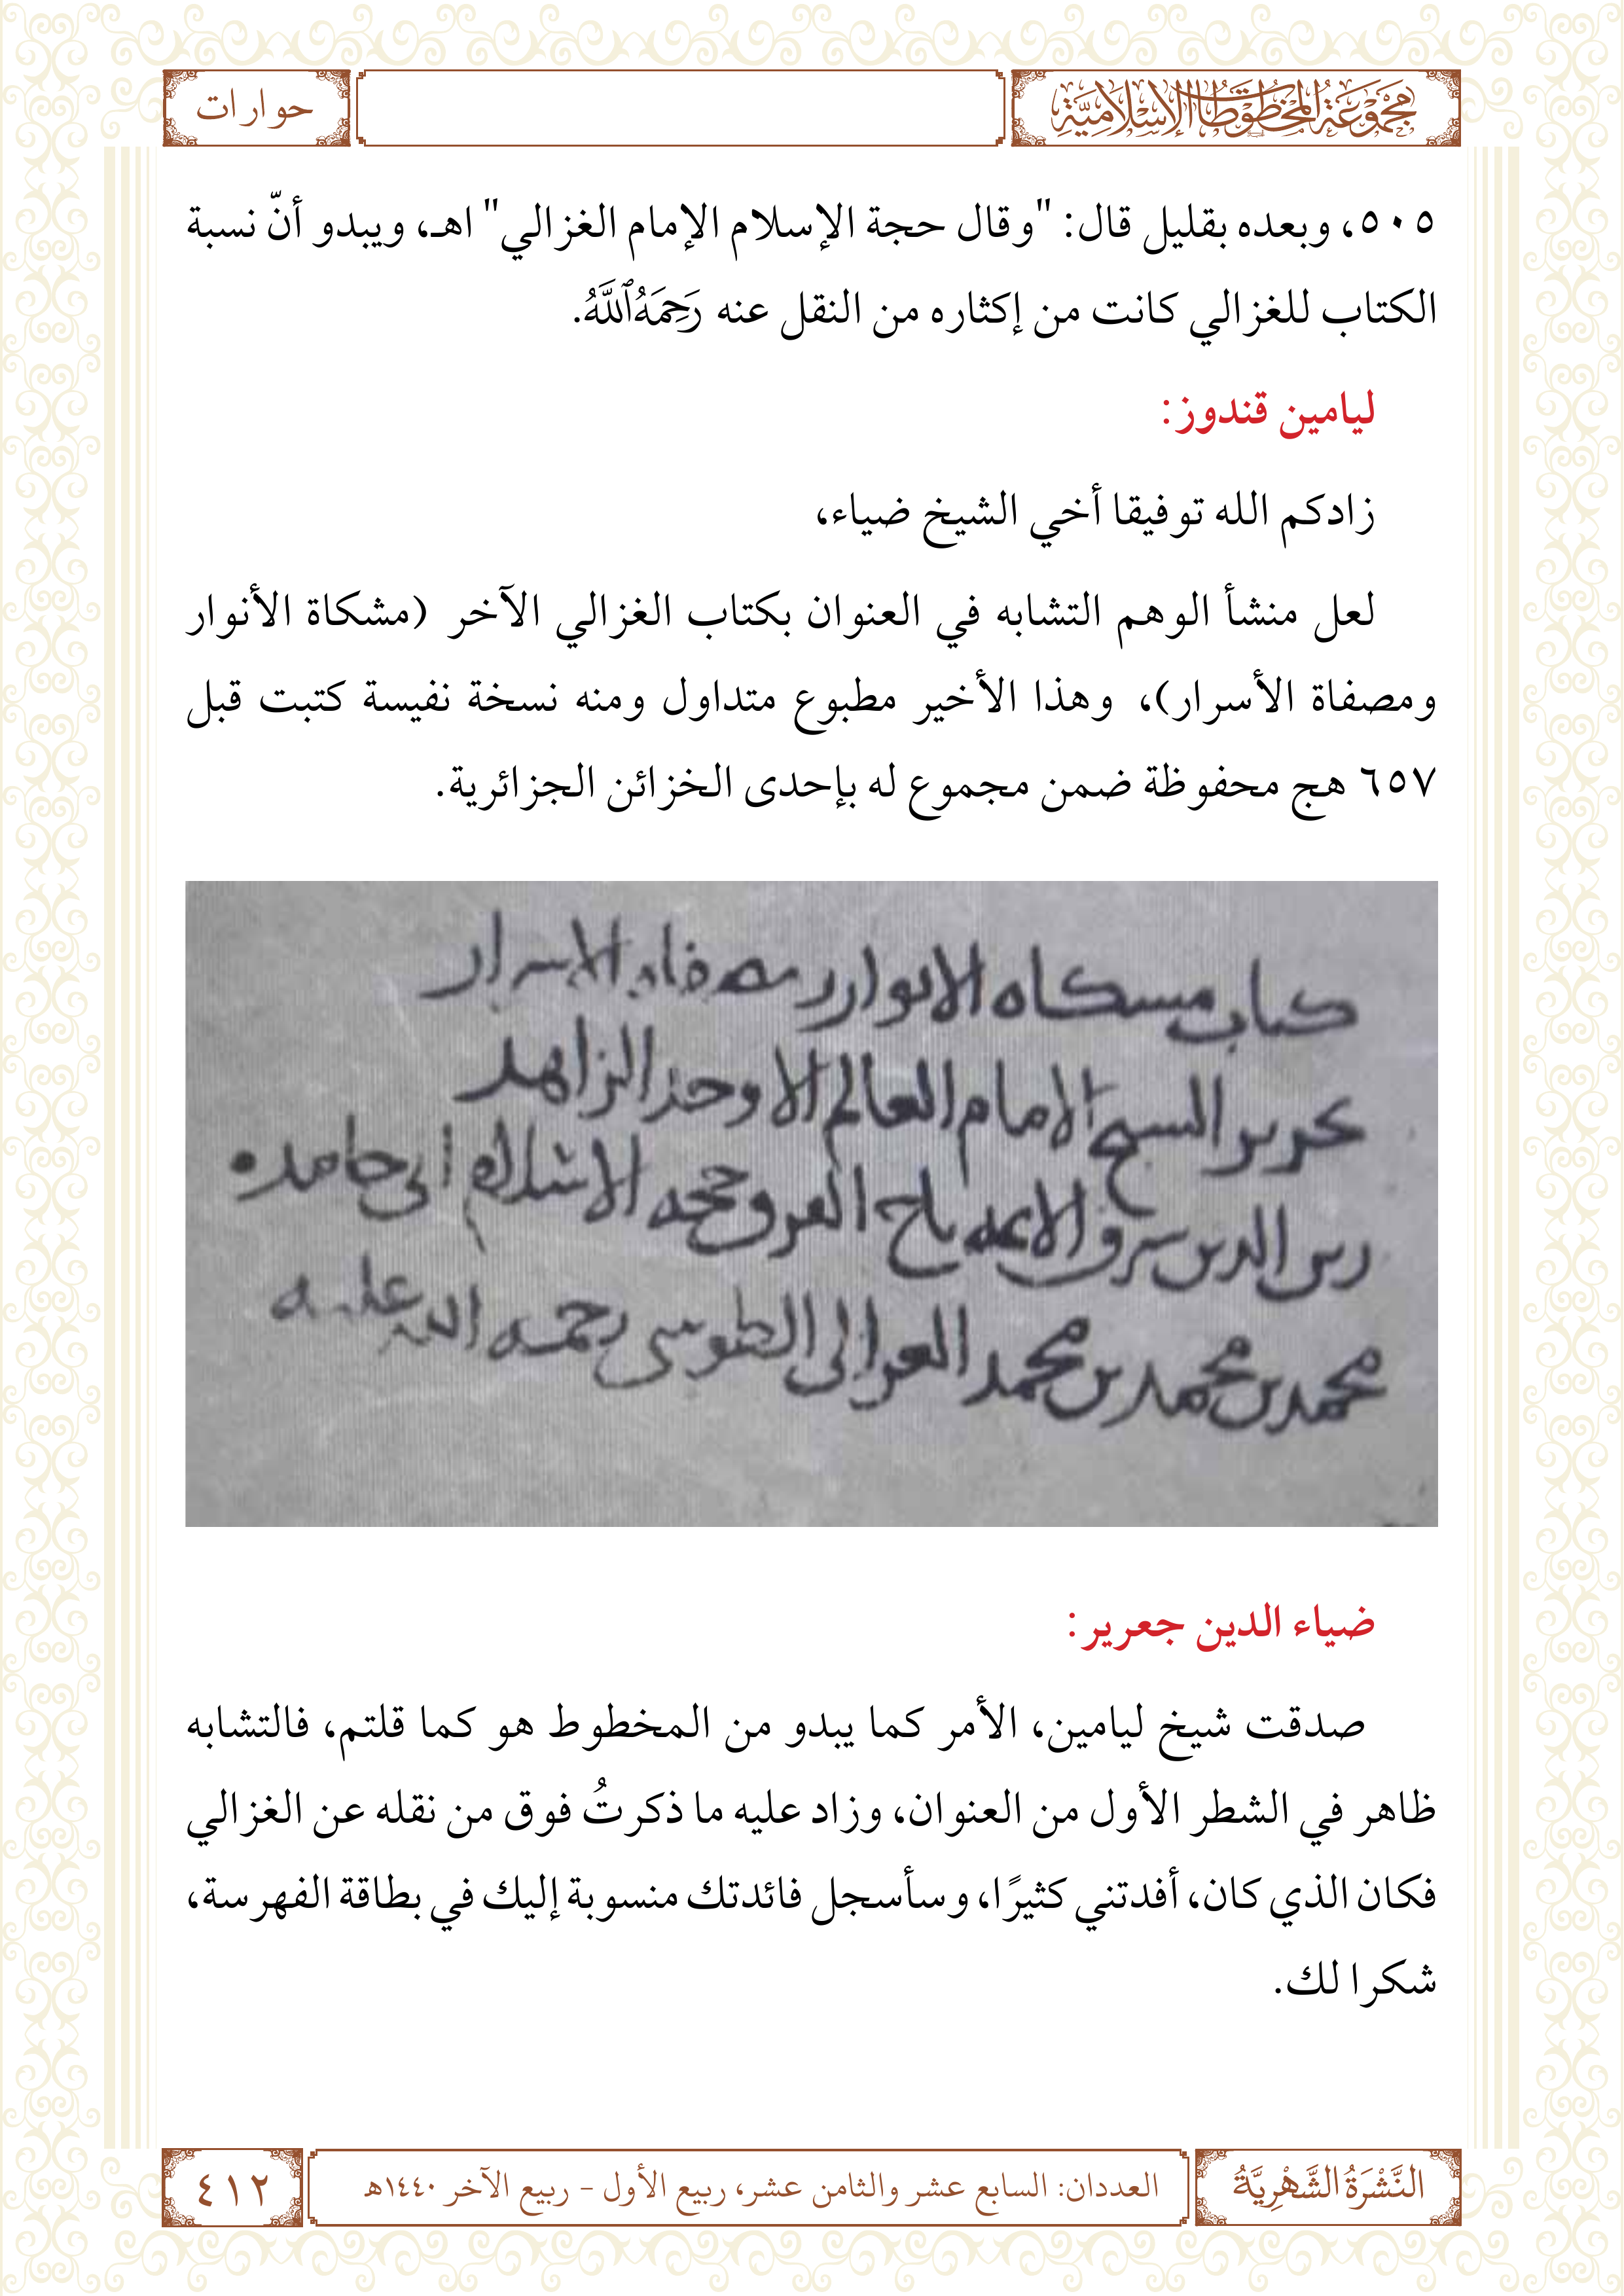 مَجْمُوعَةُ المَخْطُوطَاتِ الإِسْلَامِيَّةِ
حوارات
٥٠٥، وبعده بقليل قال: "وقال حجة الإسلام الإمام الغزالي" اهـ، ويبدو أنّ نسبة
الكتاب للغزالي كانت من إكثاره من النقل عنه رَحِمَهُ ٱللَّهُ.
ليامين قندوز:
زادكم الله توفيقا أخي الشيخ ضياء،
لعل منشأ الوهم التشابه في العنوان بكتاب الغزالي الآخر (مشكاة الأنوار
ومصفاة الأسرار)، وهذا الأخير مطبوع متداول ومنه نسخة نفيسة كتبت قبل
٦٥٧ هج محفوظة ضمن مجموع له بإحدى الخزائن الجزائرية.
كتاب مسكاه الانوار ومصفاه الاسرار
تحرير الشيخ الامام العالم الاوحد الزاهد
زين الدين شرف الائمه تاج الفرق حجه الاسلام ابى حامد
محمد بن محمد بن محمد الغزالى الطوسى رحمه الله عليه
ضياء الدين جعرير:
صدقت شيخ ليامين، الأمر كما يبدو من المخطوط هو كما قلتم، فالتشابه
ظاهر في الشطر الأول من العنوان، وزاد عليه ما ذكرتُ فوق من نقله عن الغزالي
فكان الذي كان، أفدتني كثيرًا، وسأسجل فائدتك منسوبة إليك في بطاقة الفهرسة،
شكرا لك.
النَّشْرَةُ الشَّهْرِيَّةُ
العددان: السابع عشر والثامن عشر، ربيع الأول - ربيع الآخر ١٤٤٠هـ
٤١٢